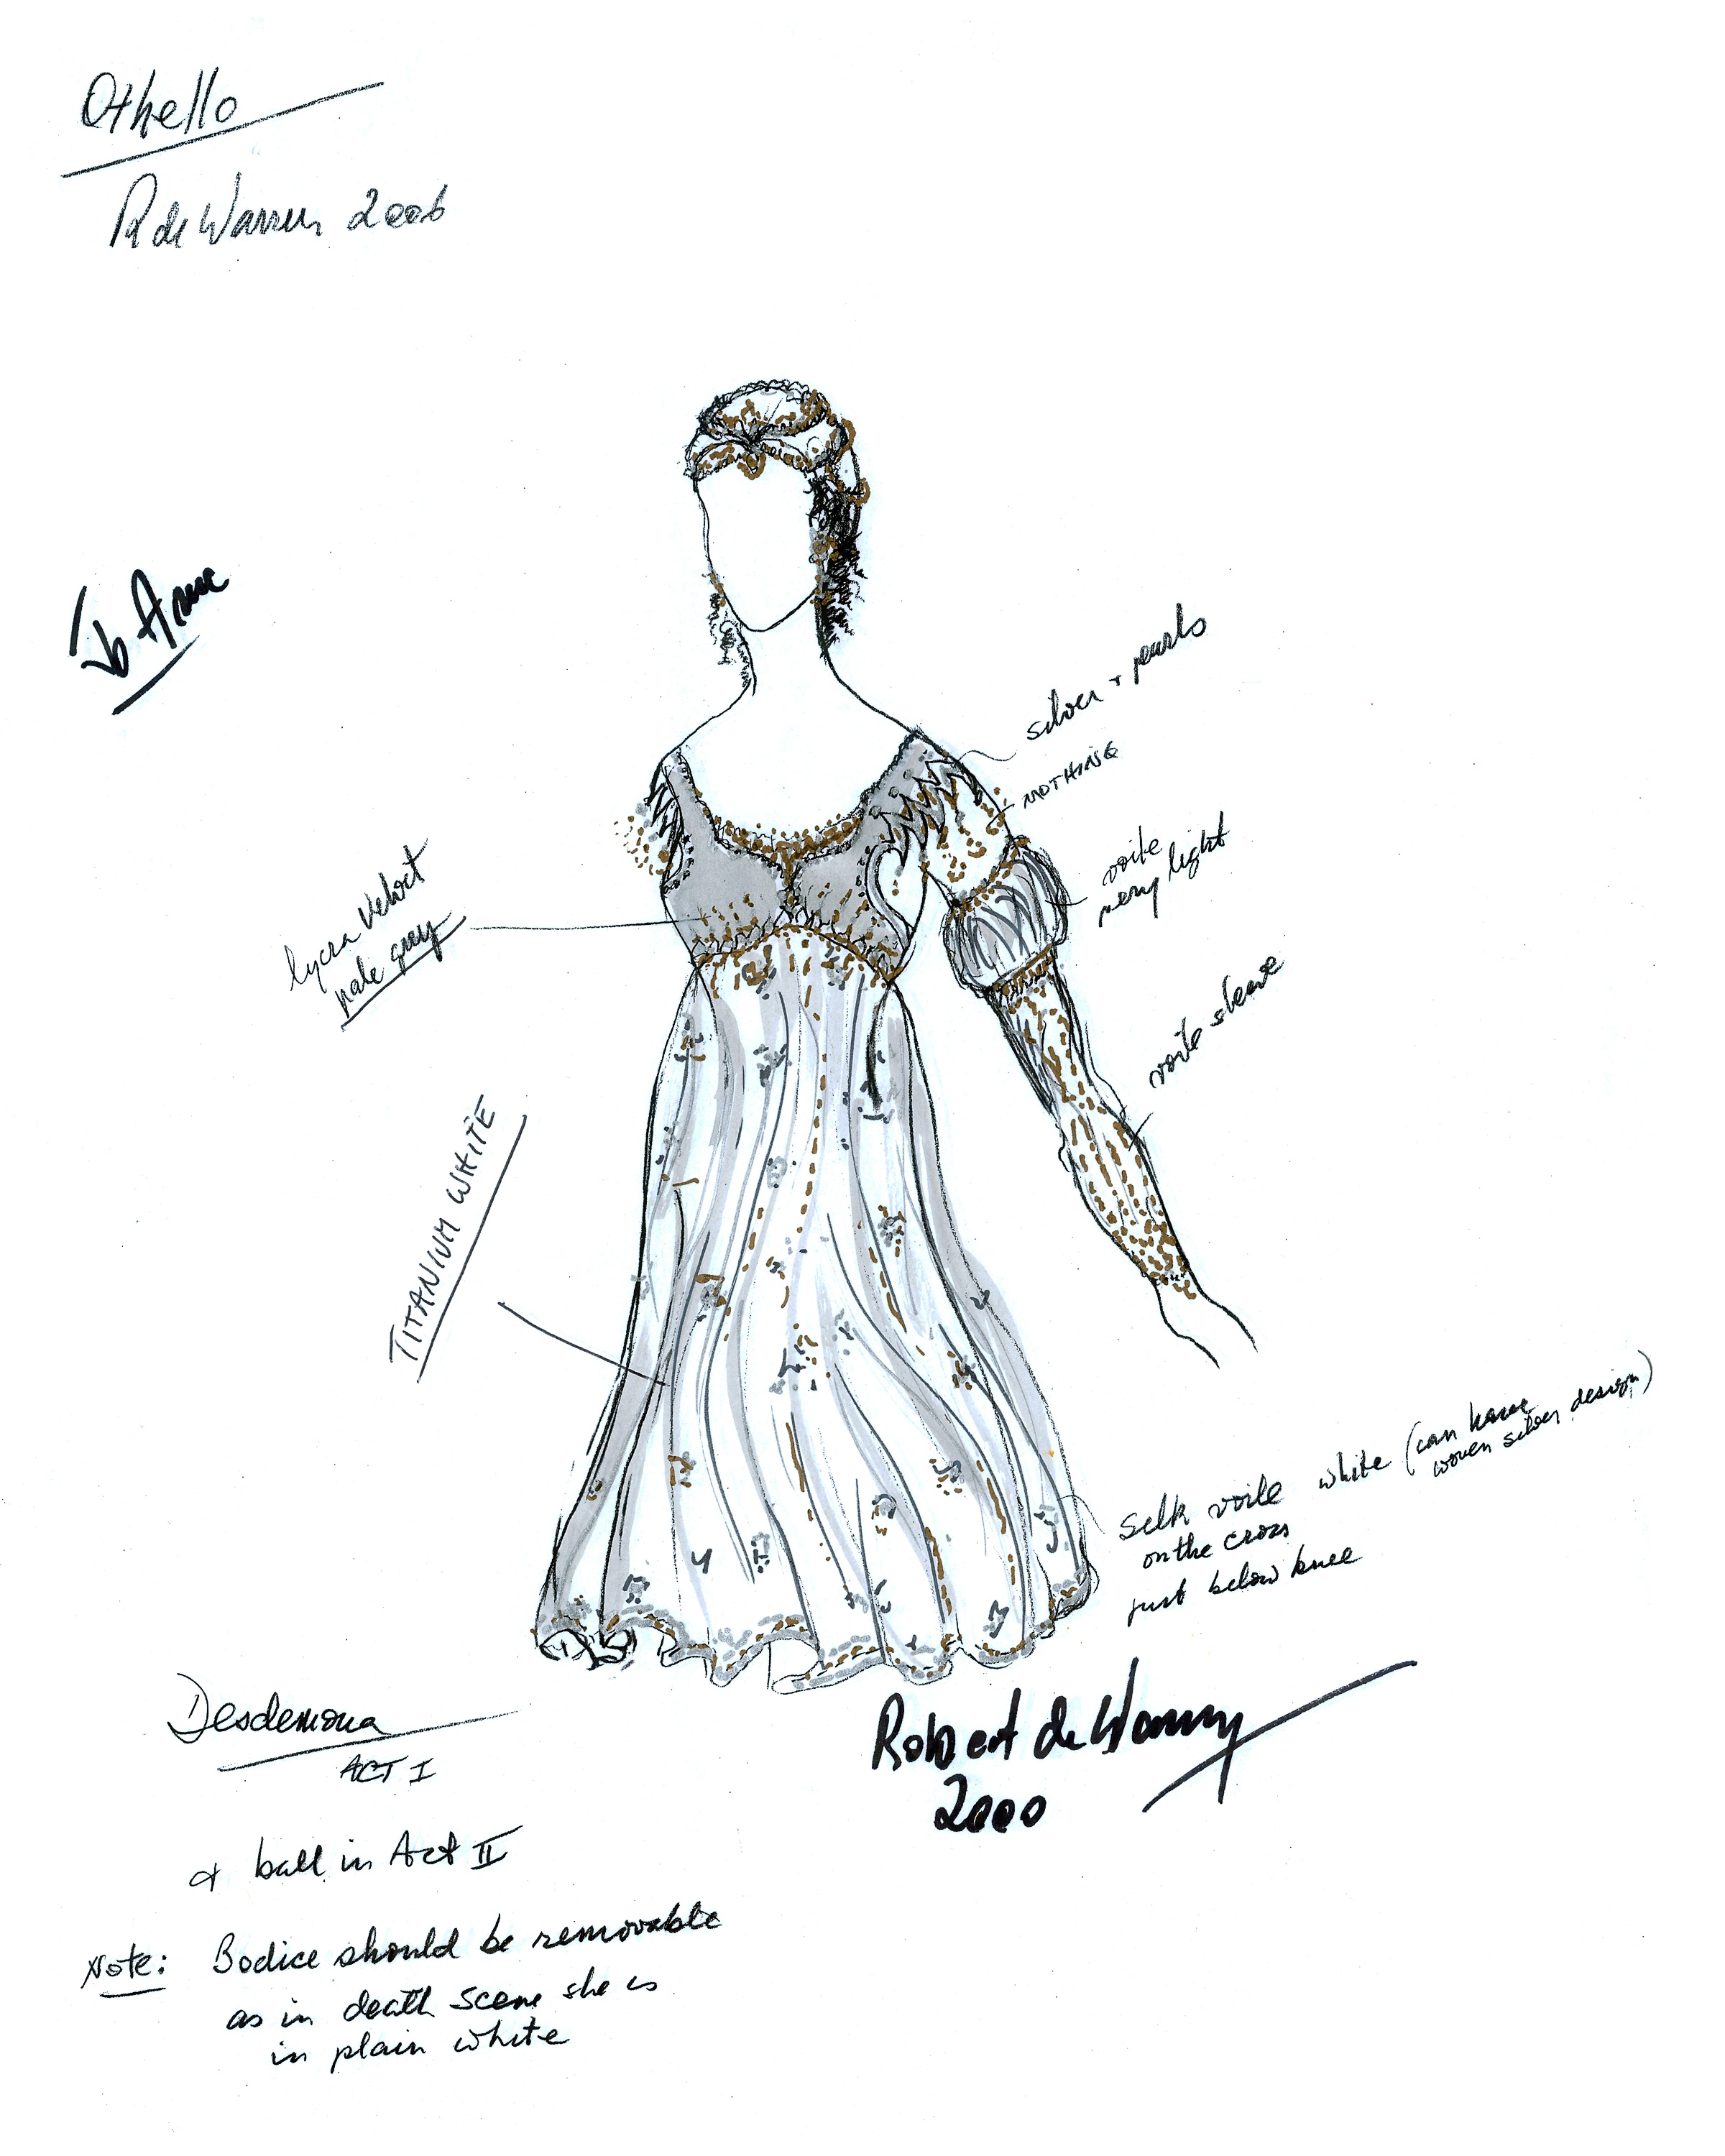 Othello
R de Warren 2006
To Anne
silver + pearls
NOTHING
voile
very light
lycra velvet
pale grey
voile sleeve
TITANIUM WHITE
silk voile white (can have
woven silver design)
on the cross
just below knee
Desdemona
ACT I
Robert de Warren
2000
+ ball in Act II
Note: Bodice should be removable
as in death scene she is
in plain white